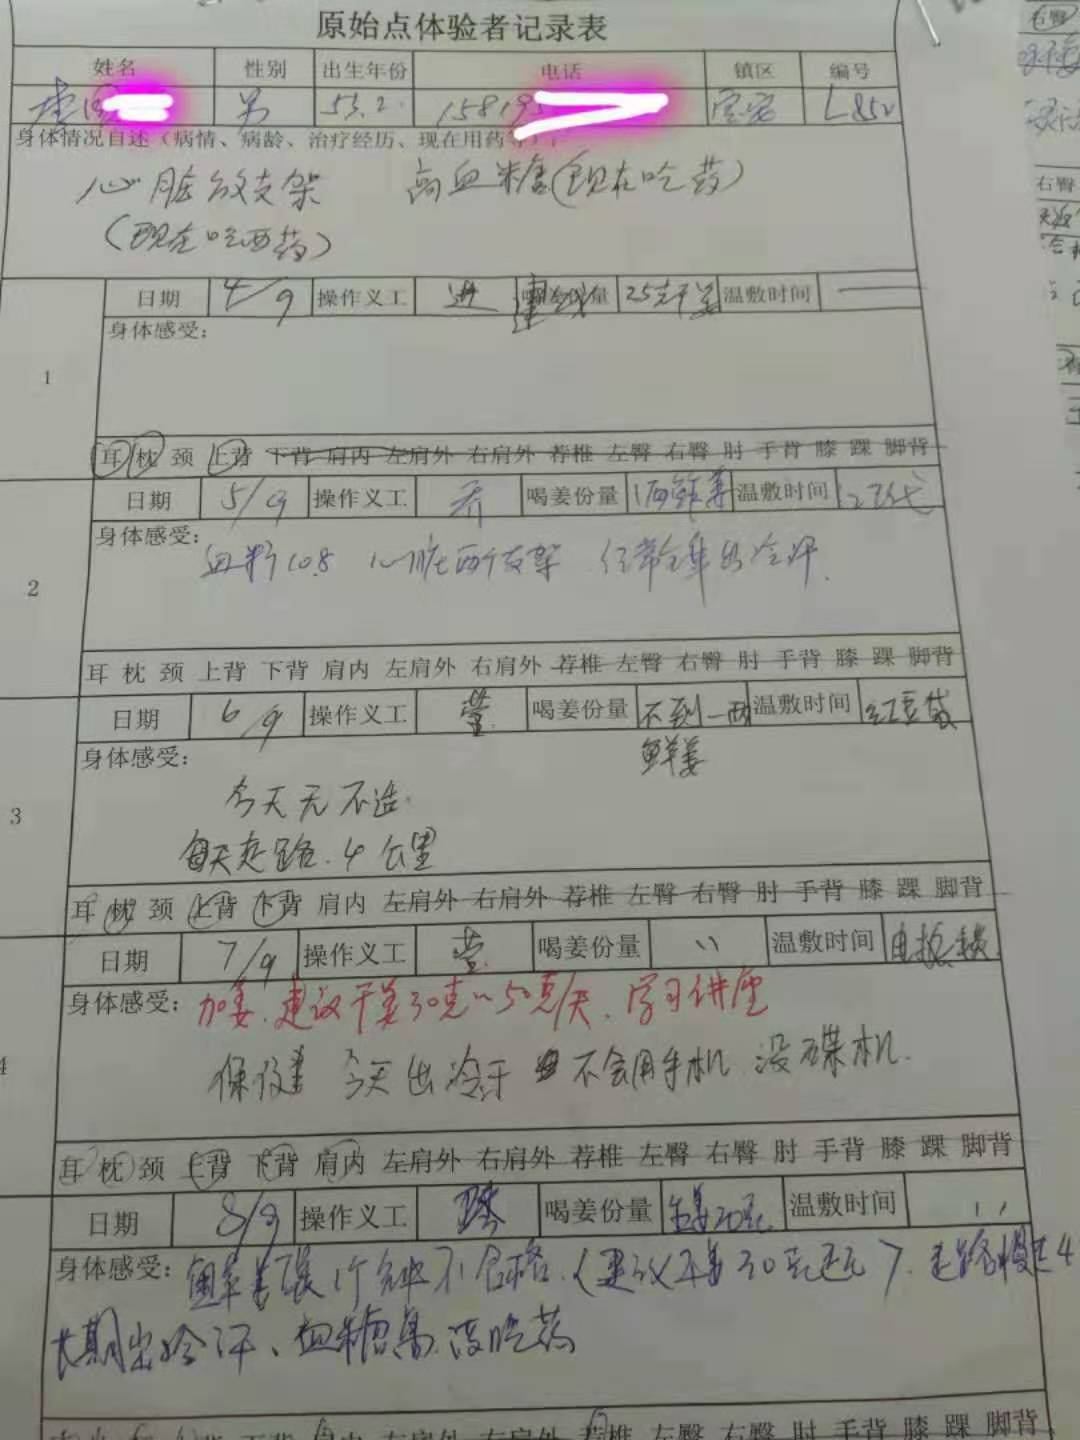 原始点体验者记录表
姓名 性别 出生年份 电话 镇区 编号
李 男 53.2. 15819 宝安 L852
身体情况自述（病情、病龄、治疗经历、现在用药等）：
心脏放支架 高血糖(现在吃药)
(现在吃西药)
1
日期 4/9 操作义工 进 喝姜份量 25克干姜 温敷时间 —
身体感受：
耳 枕 颈 上背 下背 肩内 左肩外 右肩外 荐椎 左臀 右臀 肘 手背 膝 踝 脚背
2
日期 5/9 操作义工 乔 喝姜份量 1两鲜姜 温敷时间
身体感受：
血糖10.8 心脏两个支架 经常全身出冷汗.
耳 枕 颈 上背 下背 肩内 左肩外 右肩外 荐椎 左臀 右臀 肘 手背 膝 踝 脚背
3
日期 6/9 操作义工 莹 喝姜份量 不到一两 温敷时间 红豆袋
鲜姜
身体感受：
今天无不适.
每天走路.4公里
耳 枕 颈 上背 下背 肩内 左肩外 右肩外 荐椎 左臀 右臀 肘 手背 膝 踝 脚背
4
日期 7/9 操作义工 莹 喝姜份量 〃 温敷时间
身体感受：加姜.建议干姜30克~50克/天.学习讲座
今天出冷汗 不会用手机.没碟机.
耳 枕 颈 上背 下背 肩内 左肩外 右肩外 荐椎 左臀 右臀 肘 手背 膝 踝 脚背
日期 8/9 操作义工 喝姜份量 生姜30克 温敷时间 〃
身体感受：鲜姜 不合格.(建议干姜30克 ).走路慢走4
长期出冷汗、血糖高.没吃药
下背 肩内 左肩外 右肩外 荐椎 左臀 右臀 肘 手背 膝 踝 脚背
右臀
右臀